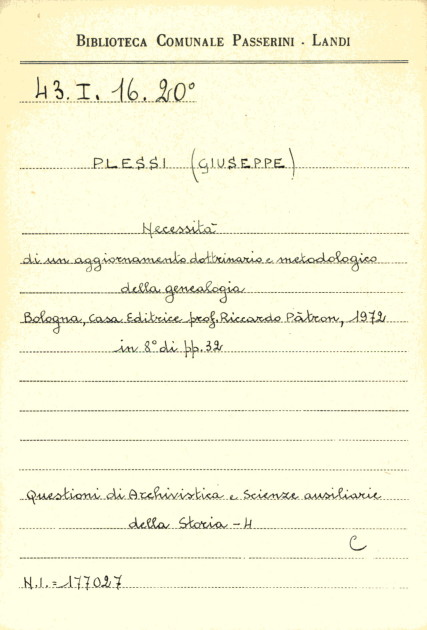 BIBLIOTECA COMUNALE PASSERINI - LANDI
43. I. 16. 20°
PLESSI (GIUSEPPE)
Necessità
di un aggiornamento dottrinario e metodologico
della genealogia
Bologna, Casa Editrice prof. Riccardo Pàtron, 1972
in 8° di pp. 32
Questioni di Archivistica e Scienze ausiliarie
della Storia - 4
C
N.I. = 177027